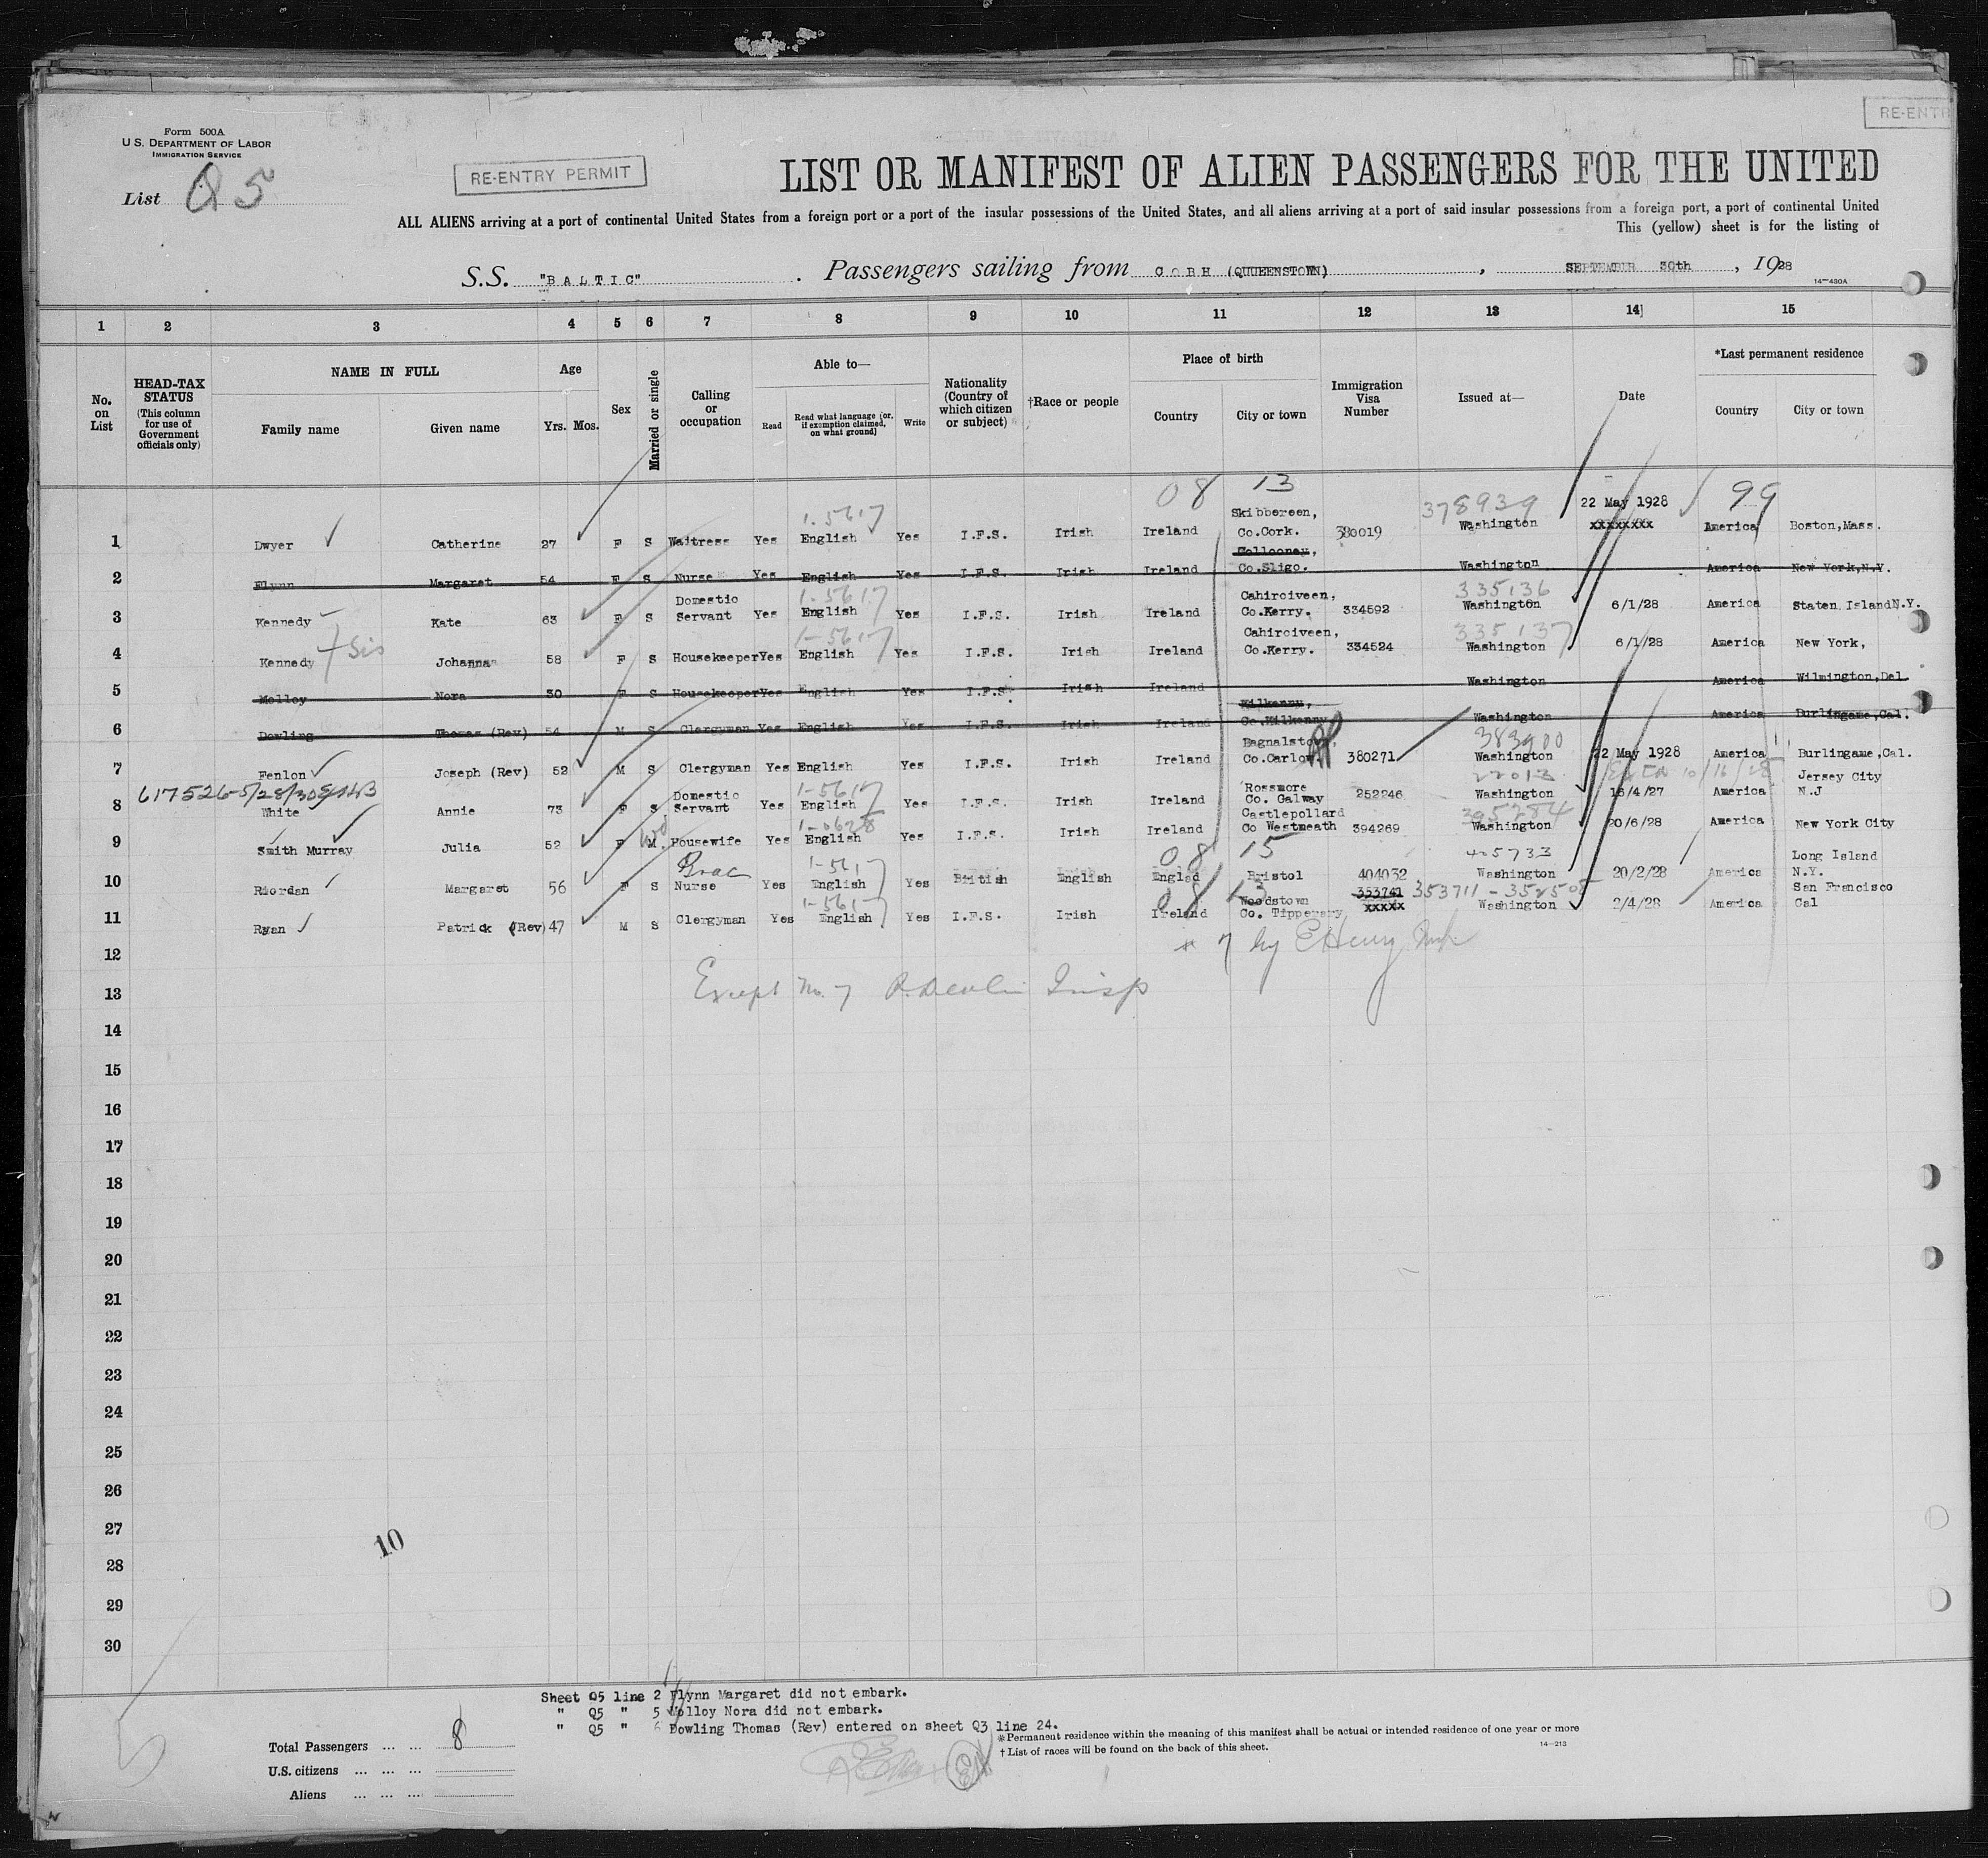 Form 500A
U. S. DEPARTMENT OF LABOR
IMMIGRATION SERVICE
RE-ENTRY PERMIT
RE-ENTR
List Q5
LIST OR MANIFEST OF ALIEN PASSENGERS FOR THE UNITED
ALL ALIENS arriving at a port of continental United States from a foreign port or a port of the insular possessions of the United States, and all aliens arriving at a port of said insular possessions from a foreign port, a port of continental United
This (yellow) sheet is for the listing of
S.S. "BALTIC" . Passengers sailing from COBH (QUUEENSTOWN) , SEPTEMBER 30th , 1928
14—430A
1 2 3 4 5 6 7 8 9 10 11 12 13 14 15
No. on List
HEAD-TAX STATUS (This column for use of Government officials only)
NAME IN FULL Family name Given name
Age Yrs. Mos.
Sex
Married or single
Calling or occupation
Able to— Read Read what language [or, if exemption claimed, on what ground] Write
Nationality (Country of which citizen or subject)
†Race or people
Place of birth Country City or town
Immigration Visa Number
Issued at—
Date
*Last permanent residence Country City or town
08 13 99
1-5617 Skibbereen, 378939 22 May 1928
1 Dwyer Catherine 27 F S Waitress Yes English Yes I.F.S. Irish Ireland Co.Cork. 380019 Washington xxxxxxxx America Boston,Mass.
Collooney,
2 Flynn Margaret 54 F S Nurse Yes English Yes I.F.S. Irish Ireland Co.Sligo. Washington America New York,N.Y.
Domestic 1-5617 Cahirciveen, 335136
3 Kennedy Kate 63 F S Servant Yes English Yes I.F.S. Irish Ireland Co.Kerry. 334592 Washington 6/1/28 America Staten IslandN.Y.
Sis 1-5617 Cahirciveen, 335137
4 Kennedy Johanna 58 F S Housekeeper Yes English Yes I.F.S. Irish Ireland Co.Kerry. 334524 Washington 6/1/28 America New York,
5 Molloy Nora 30 F S Housekeeper Yes English Yes I.F.S. Irish Ireland Washington America Wilmington,Del
Kilkenny,
6 Dowling Thomas (Rev) 54 M S Clergyman Yes English Yes I.F.S. Irish Ireland Co.Kilkenny Washington America Burlingame,Cal.
Bagnalstown, 383900
7 Fenlon Joseph (Rev) 52 M S Clergyman Yes English Yes I.F.S. Irish Ireland Co.Carlow 380271 Washington 22 May 1928 America Burlingame,Cal.
617526-5/28/30 Domestic 1-5617 Rossmore 22013 10/16/28 Jersey City
8 White Annie 73 F S Servant Yes English Yes I.F.S. Irish Ireland Co. Galway 252246 Washington 16/4/27 America N.J
Wd 1-0628 Castlepollard 395284
9 Smith Murray Julia 52 F M Housewife Yes English Yes I.F.S. Irish Ireland Co Westmeath 394269 Washington 20/6/28 America New York City
Prac 1-5617 08 15 405733 Long Island
10 Riordan Margaret 56 F S Nurse Yes English Yes British English Englad Bristol 404032 Washington 20/2/28 America N.Y.
1-5617 08 13 Woodstown 353741 353711-352505 San Francisco
11 Ryan Patrick (Rev) 47 M S Clergyman Yes English Yes I.F.S. Irish Ireland Co. Tipperary xxxxx Washington 2/4/28 America Cal
12 * 7 by E Henry Insp
13 Except No. 7 Insp
14
15
16
17
18
19
20
21
22
23
24
25
26
27
10
28
29
30
Sheet Q5 line 2 Flynn Margaret did not embark.
" Q5 " 5 Molloy Nora did not embark.
" Q5 " 6 Dowling Thomas (Rev) entered on sheet Q3 line 24.
Total Passengers ... ... 8
U.S. citizens ... ... ...
Aliens ... ... ...
*Permanent residence within the meaning of this manifest shall be actual or intended residence of one year or more
† List of races will be found on the back of this sheet.
14—213